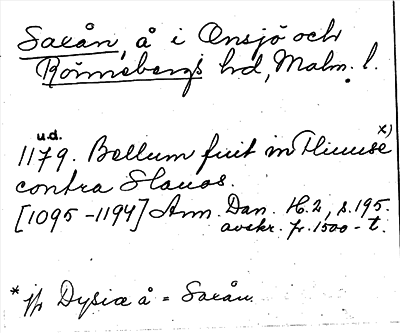 Saxån, å i Onsjö och
Rönnebergs hd, Malm. l.
u.d.
1179. Bellum fuit in Thiuuse x)
contra Slauos.
[1095-1194] Ann. Dan. H. 2, s. 195.
avskr. fr. 1500-t.
* jfr Dysiæ å = Saxån